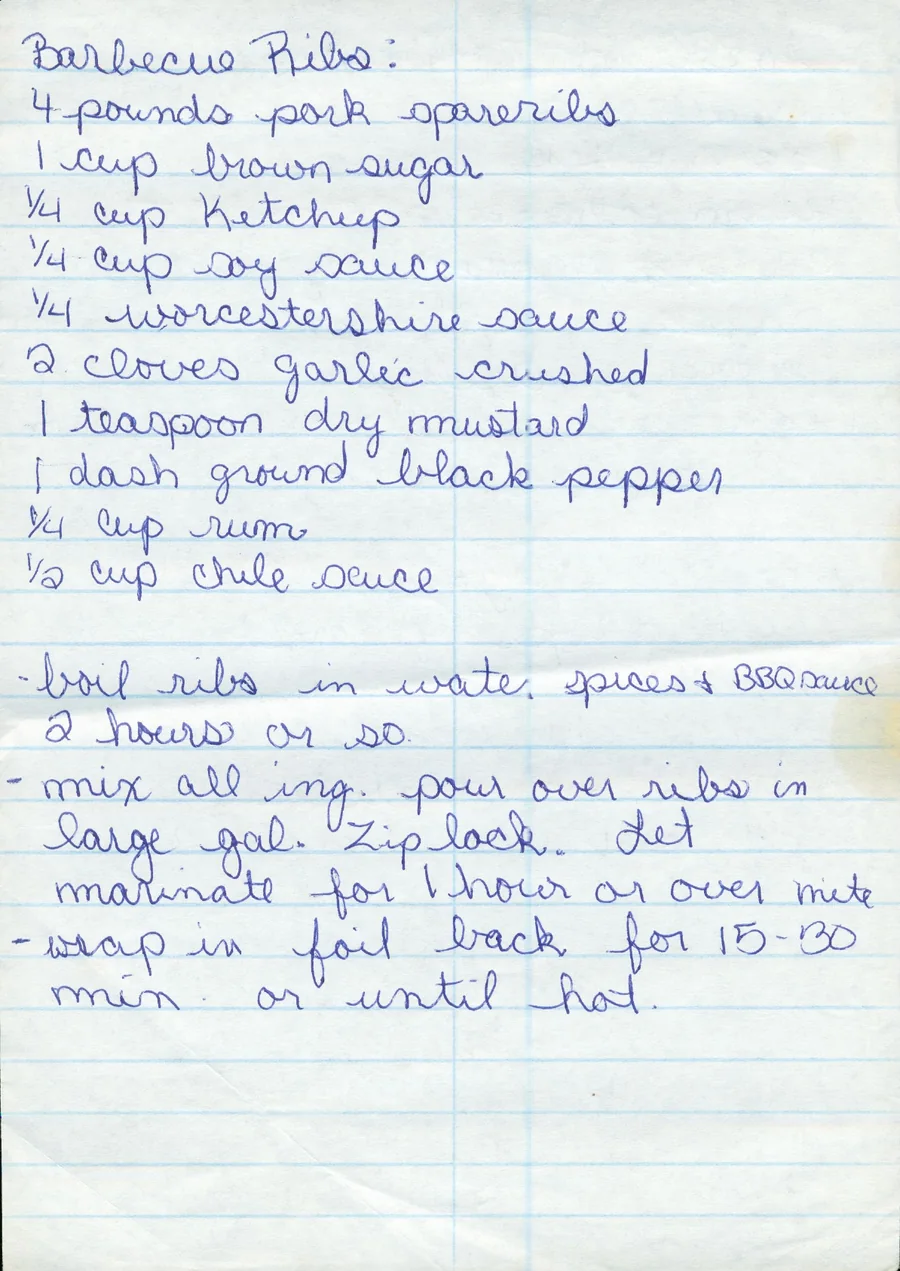 Barbecue Ribs:
4 pounds pork spareribs
1 cup brown sugar
1/4 cup Ketchup
1/4 cup soy sauce
1/4 worcestershire sauce
2 cloves garlic crushed
1 teaspoon dry mustard
1 dash ground black pepper
1/4 cup rum
1/2 cup chile sauce
- boil ribs in wate. spices & BBQ sauce
2 hours or so.
- mix all ing. pour over ribs in
large gal. Zip lock. Let
marinate for 1 hour or over nite
- wrap in foil back for 15-30
min. or until hot.